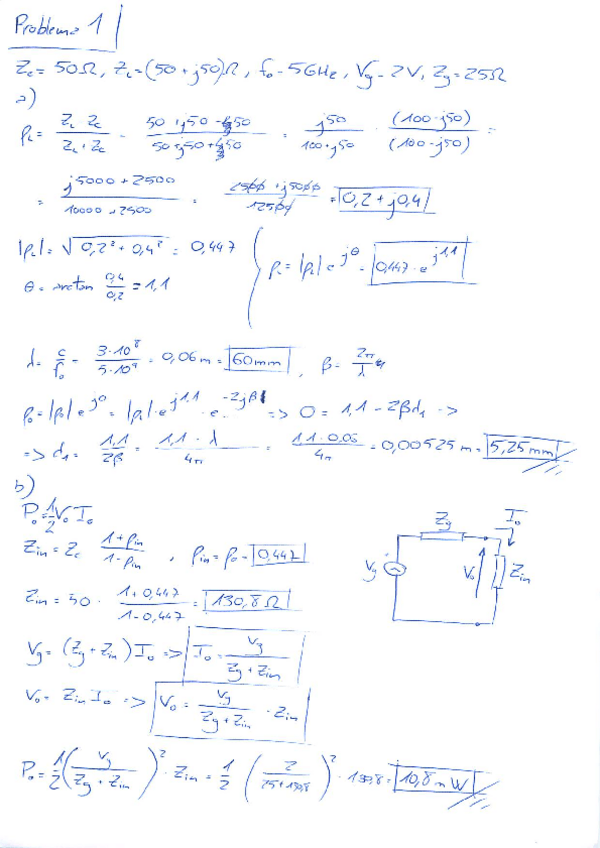 Problema 1
Zc = 50Ω, ZL = (50 + j50)Ω, f₀ = 5GHz, Vg = 2V, Zg = 25Ω
a)
ρL = (ZL - Zc)/(ZL + Zc) = (50 + j50 - 50)/(50 + j50 + 50) = j50/(100 + j50) · (100 - j50)/(100 - j50) =
= (j5000 + 2500)/(10000 + 2500) = (2500 + j5000)/12500 = 0,2 + j0,4
|ρL| = √(0,2² + 0,4²) = 0,447
θ = arctan 0,4/0,2 = 1,1
ρL = |ρL| e^jθ = 0,447 · e^j1,1
λ = c/f₀ = 3·10⁸/5·10⁹ = 0,06 m = 60mm, β = 2π/λ
ρ₀ = |ρL| e^j0 = |ρL| · e^j1,1 · e^-2jβl => 0 = 1,1 - 2βd₁ ->
=> d₁ = 1,1/2β = 1,1 · λ/4π = 1,1 · 0,06/4π = 0,00525 m = 5,25 mm
b)
P₀ = 1/2 V₀ I₀
Zin = Zc (1 + ρin)/(1 - ρin), ρin = ρ₀ = 0,447
Zin = 50 · (1 + 0,447)/(1 - 0,447) = 130,8 Ω
Vg = (Zg + Zin) I₀ => I₀ = Vg/(Zg + Zin)
V₀ = Zin I₀ => V₀ = Vg/(Zg + Zin) · Zin
Zg I₀
Vg V₀ Zin
P₀ = 1/2 (Vg/(Zg + Zin))² · Zin = 1/2 (2/(25 + 130,8))² · 130,8 = 10,8 mW